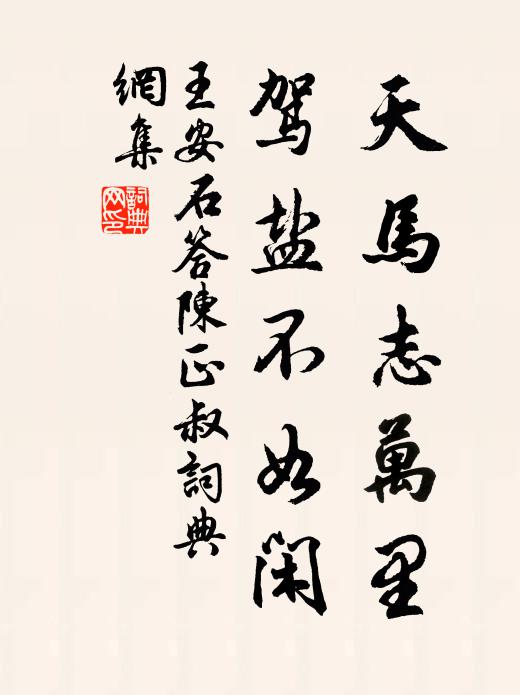 天馬志萬里
駕盐不如閑
王安石答陳正叔詞典
網集
詞典
网印